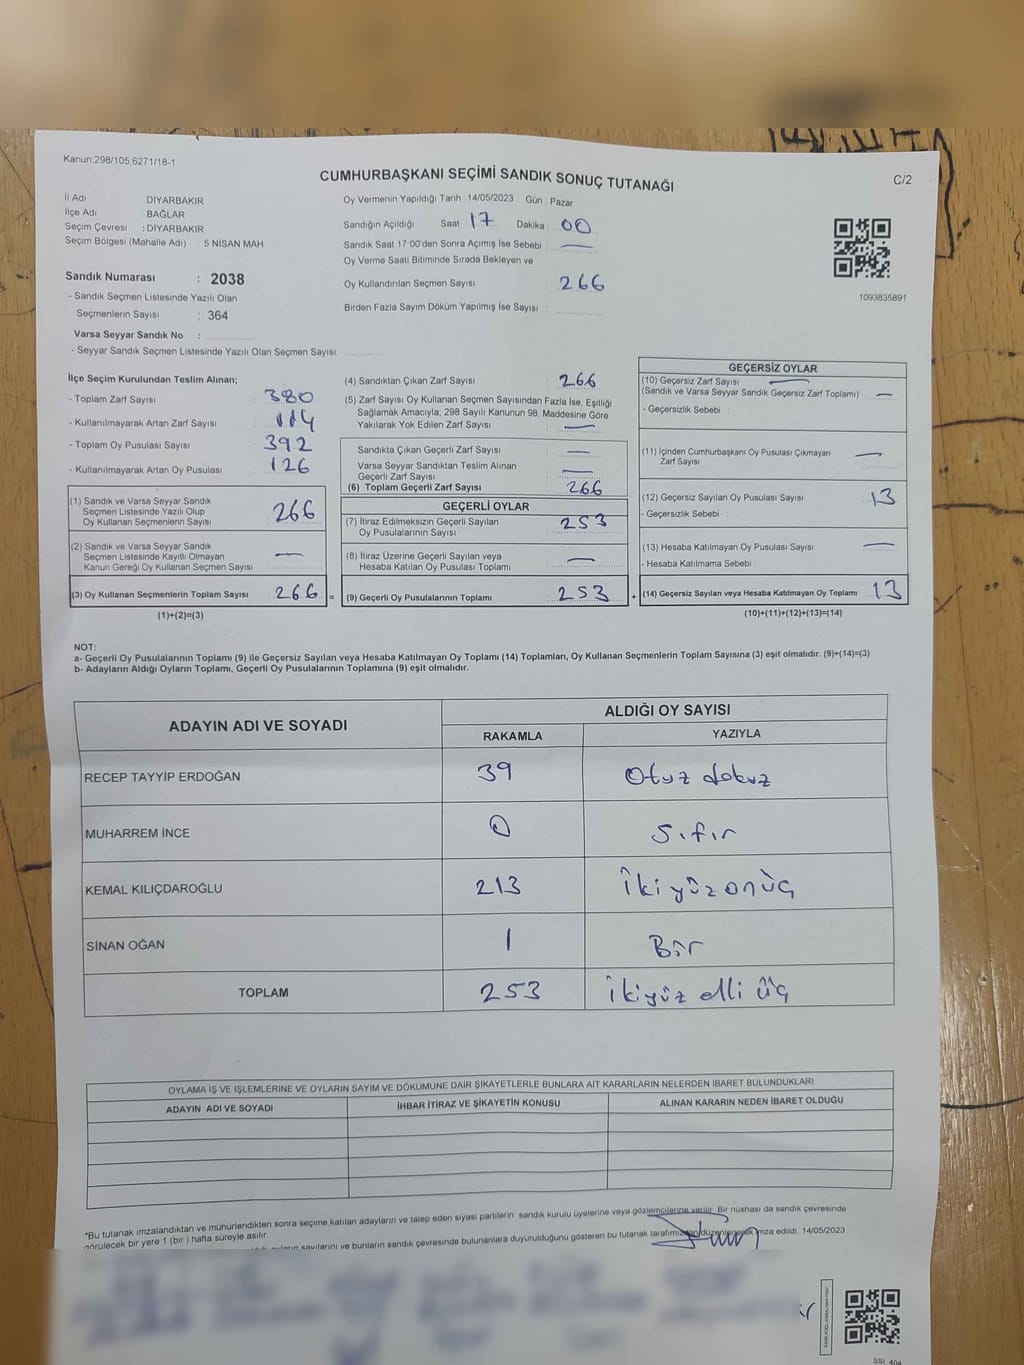 Kanun;298/105,6271/18-1
CUMHURBAŞKANI SEÇİMİ SANDIK SONUÇ TUTANAĞI
C/2
İl Adı : DİYARBAKIR
İlçe Adı : BAĞLAR
Seçim Çevresi : DİYARBAKIR
Seçim Bölgesi (Mahalle Adı) : 5 NİSAN MAH.
Sandık Numarası : 2038
- Sandık Seçmen Listesinde Yazılı Olan
Seçmenlerin Sayısı : 364
Varsa Seyyar Sandık No :
- Seyyar Sandık Seçmen Listesinde Yazılı Olan Seçmen Sayısı:
Oy Vermenin Yapıldığı Tarih : 14/05/2023 Gün : Pazar
Sandığın Açıldığı Saat : 17 Dakika : 00
Sandık Saat 17 00'den Sonra Açımış İse Sebebi : —
Oy Verme Saati Bitiminde Sırada Bekleyen ve
Oy Kullandırılan Seçmen Sayısı : 266
Birden Fazla Sayım Döküm Yapılmış İse Sayısı :
1093835891
İlçe Seçim Kurulundan Teslim Alınan;
- Toplam Zarf Sayısı : 380
- Kullanılmayarak Artan Zarf Sayısı : 114
- Toplam Oy Pusulası Sayısı : 392
- Kullanılmayarak Artan Oy Pusulası : 126
(1) Sandık ve Varsa Seyyar Sandık
Seçmen Listesinde Yazılı Olup
Oy Kullanan Seçmenlerin Sayısı : 266
(2) Sandık ve Varsa Seyyar Sandık
Seçmen Listesinde Kayıtlı Olmayan
Kanun Gereği Oy Kullanan Seçmen Sayısı : —
(3) Oy Kullanan Seçmenlerin Toplam Sayısı : 266 =
(1)+(2)=(3)
(4) Sandıktan Çıkan Zarf Sayısı : 266
(5) Zarf Sayısı Oy Kullanan Seçmen Sayısından Fazla İse, Eşitliği
Sağlamak Amacıyla, 298 Sayılı Kanunun 98. Maddesine Göre
Yakılarak Yok Edilen Zarf Sayısı : —
Sandıkta Çıkan Geçerli Zarf Sayısı : —
Varsa Seyyar Sandıktan Teslim Alınan
Geçerli Zarf Sayısı : —
(6) Toplam Geçerli Zarf Sayısı : 266
GEÇERLİ OYLAR
(7) İtiraz Edilmeksizin Geçerli Sayılan
Oy Pusulalarının Sayısı : 253
(8) İtiraz Üzerine Geçerli Sayılan veya
Hesaba Katılan Oy Pusulası Toplamı : —
(9) Geçerli Oy Pusulalarının Toplamı : 253 +
GEÇERSİZ OYLAR
(10) Geçersiz Zarf Sayısı
(Sandık ve Varsa Seyyar Sandık Geçersiz Zarf Toplamı) : —
- Geçersizlik Sebebi :
(11) İçinden Cumhurbaşkanı Oy Pusulası Çıkmayan
Zarf Sayısı : —
(12) Geçersiz Sayılan Oy Pusulası Sayısı : 13
- Geçersizlik Sebebi :
(13) Hesaba Katılmayan Oy Pusulası Sayısı : —
- Hesaba Katılmama Sebebi :
(14) Geçersiz Sayılan veya Hesaba Katılmayan Oy Toplamı : 13
(10)+(11)+(12)+(13)=(14)
NOT:
a- Geçerli Oy Pusulalarının Toplamı (9) ile Geçersiz Sayılan veya Hesaba Katılmayan Oy Toplamı (14) Toplamları, Oy Kullanan Seçmenlerin Toplam Sayısına (3) eşit olmalıdır. (9)+(14)=(3)
b- Adayların Aldığı Oyların Toplamı, Geçerli Oy Pusulalarının Toplamına (9) eşit olmalıdır.
ADAYIN ADI VE SOYADI
ALDIĞI OY SAYISI
RAKAMLA YAZIYLA
RECEP TAYYİP ERDOĞAN 39 Otuz dokuz
MUHARREM İNCE 0 Sıfır
KEMAL KILIÇDAROĞLU 213 İkiyüzonüç
SİNAN OĞAN 1 Bir
TOPLAM 253 İkiyüz elli üç
OYLAMA İŞ VE İŞLEMLERİNE VE OYLARIN SAYIM VE DÖKÜMÜNE DAİR ŞİKAYETLERLE BUNLARA AİT KARARLARIN NELERDEN İBARET BULUNDUKLARI
ADAYIN ADI VE SOYADI İHBAR İTİRAZ VE ŞİKAYETİN KONUSU ALINAN KARARIN NEDEN İBARET OLDUĞU
*Bu tutanak imzalandıktan ve mühürlendikten sonra seçime katılan adayların ve talep eden siyasi partilerin sandık kurulu üyelerine veya gözlemcilerine verilir. Bir nüshası da sandık çevresinde
görülecek bir yere 1 (bir) hafta süreyle asılır.
sayılarını ve bunların sandık çevresinde bulunanlara duyurulduğunu gösteren bu tutanak tarafımızdan düzenlenerek imza edildi. 14/05/2023